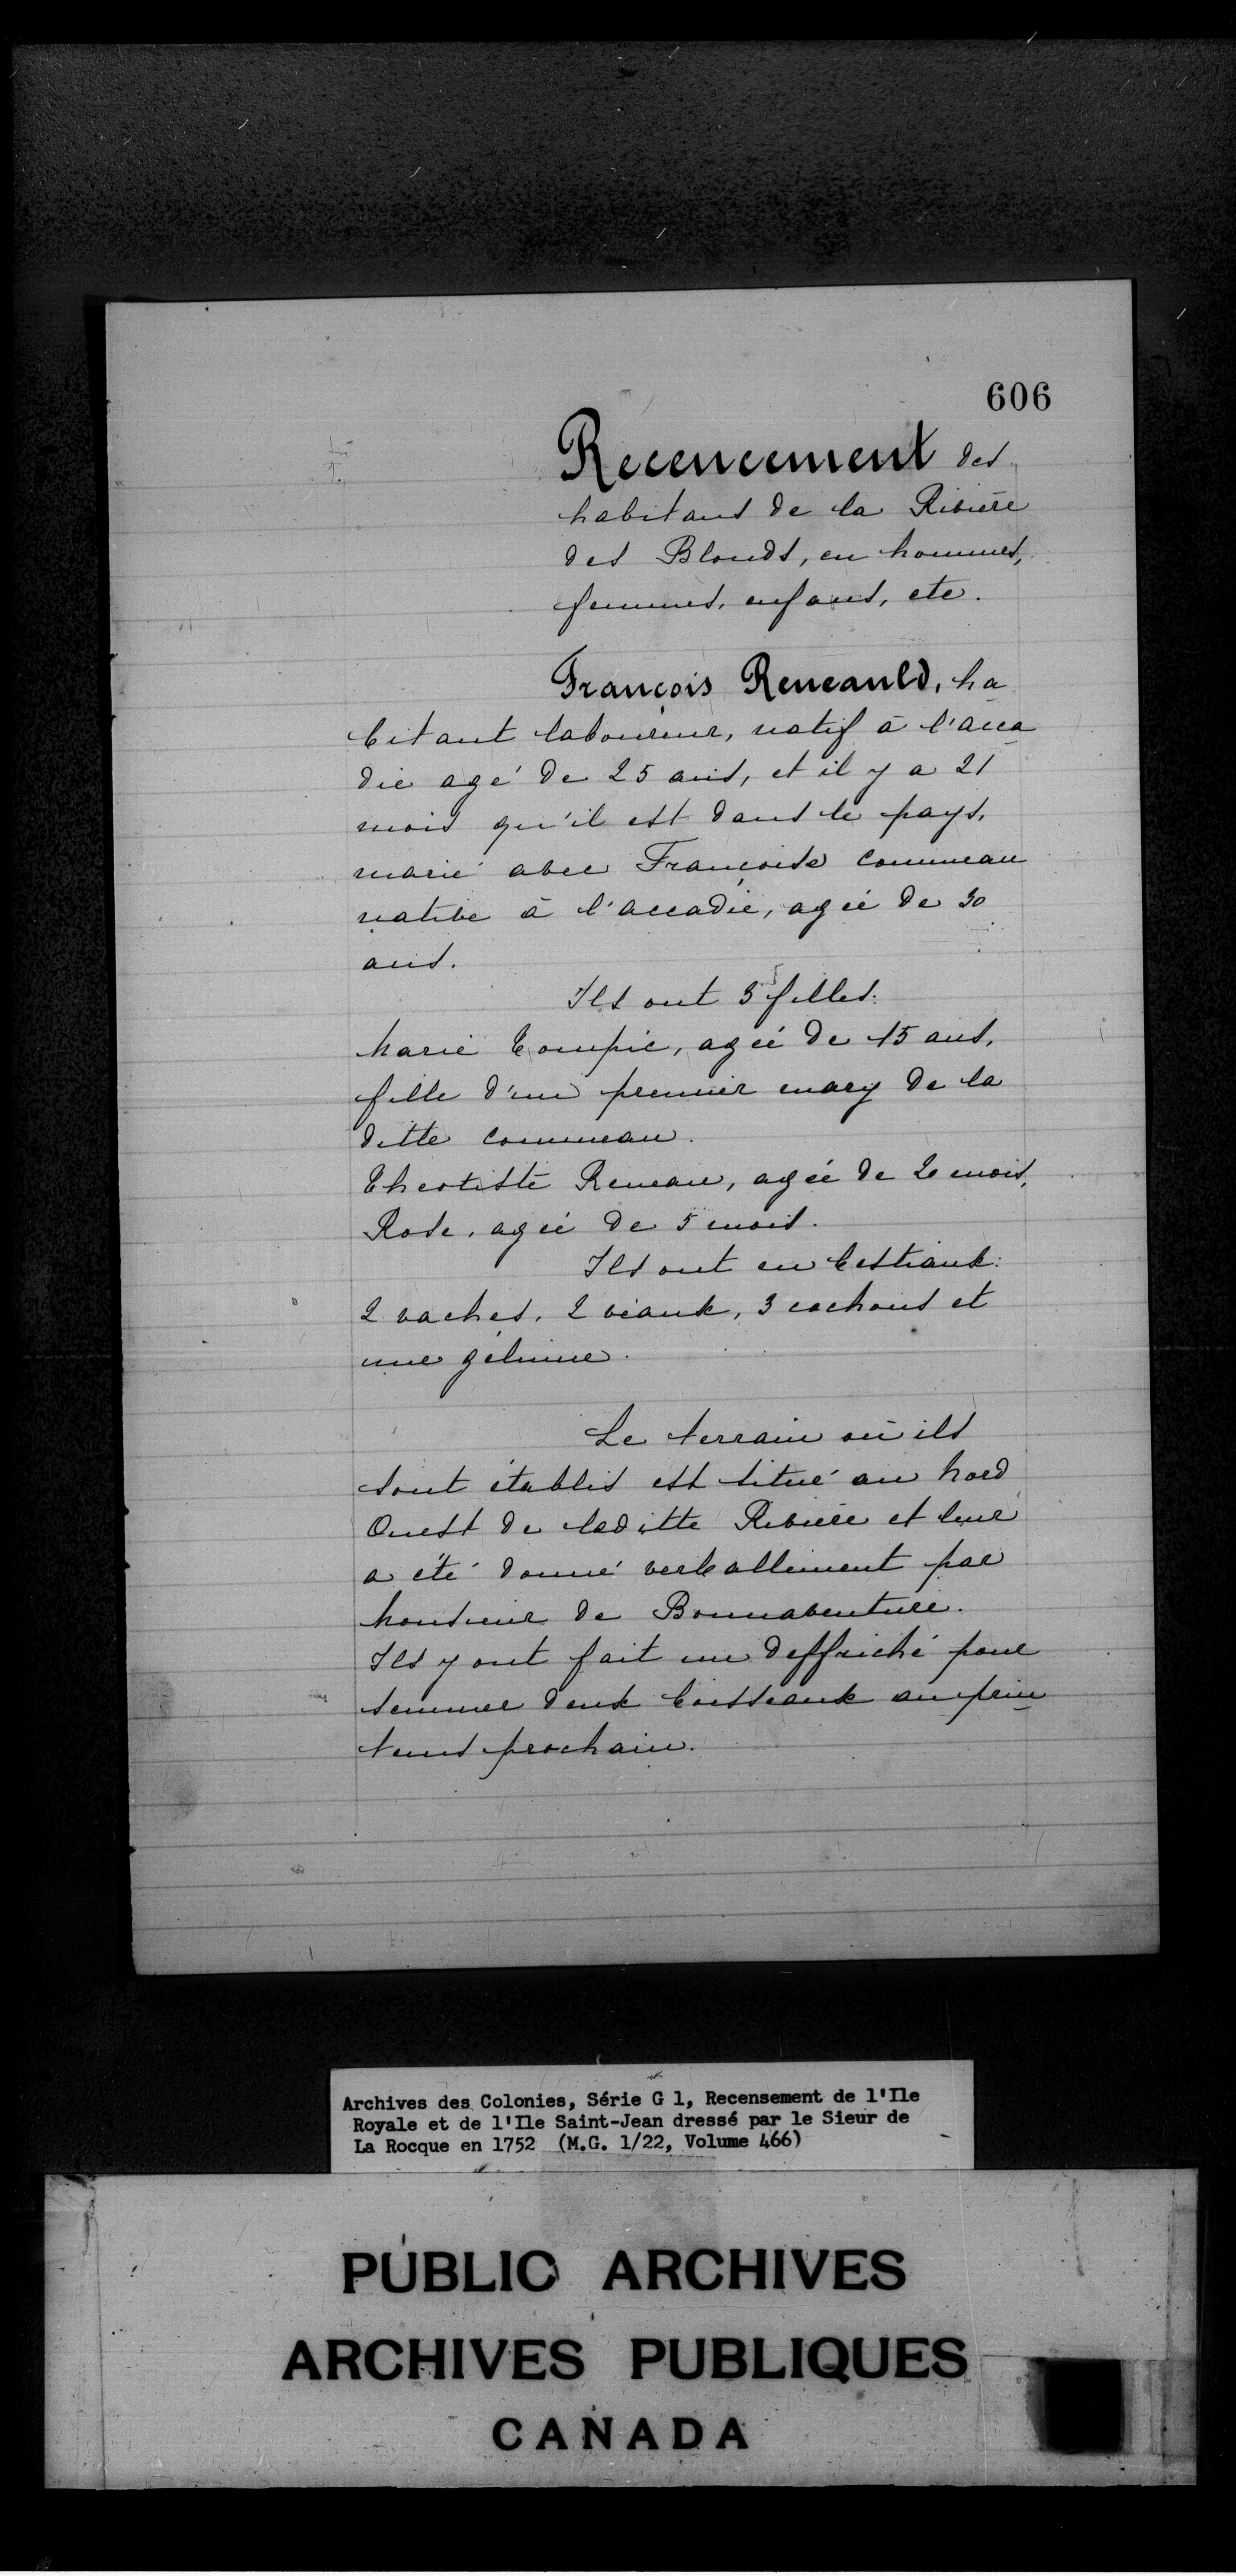 606
Recencement des
habitans de la Rivière
des Blonds, en hommes,
femmes, enfans, etc.
François Reneauld, ha
bitant laboureur, natif à l'acca
die agé de 25 ans, et il y a 21
mois qu'il est dans le pays,
marié avec Françoise Commeau
native à l'accadie, agée de 30
ans.
Ils ont 3 filles:
Marie Compic, agée de 15 ans,
fille d'un premier mary de la
ditte Commeau.
Theotiste Reneau, agée de 26 mois,
Rose, agée de 5 mois.
Ils ont en bestiaux:
2 vaches, 2 veaux, 3 cochons et
une gelinne.
Le terrain où ils
sont établis est situé au Nord
Ouest de laditte Rivière et leur
a été donné verballement par
Monsieur de Bonnaventure.
Ils y ont fait un deffriché pour
semmer deux boisseaux au prin
tems prochain.
Archives des Colonies, Série G 1, Recensement de l'Ile
Royale et de l'Ile Saint-Jean dressé par le Sieur de
La Rocque en 1752 (M.G. 1/22, Volume 466)
PUBLIC ARCHIVES
ARCHIVES PUBLIQUES
CANADA